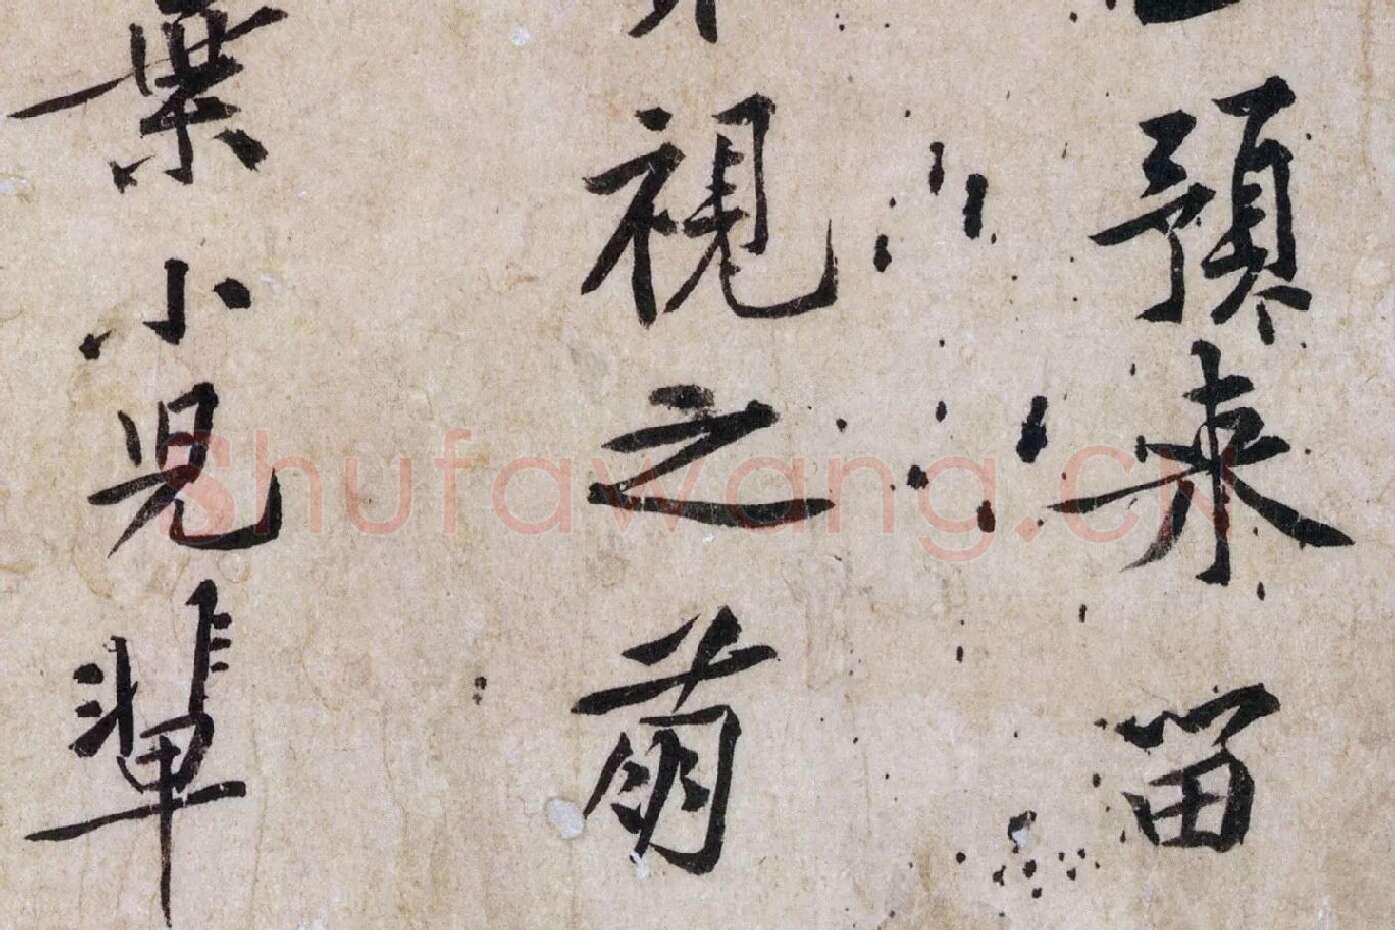 預来留
視之前
葉小児輩
Shufawang.CN